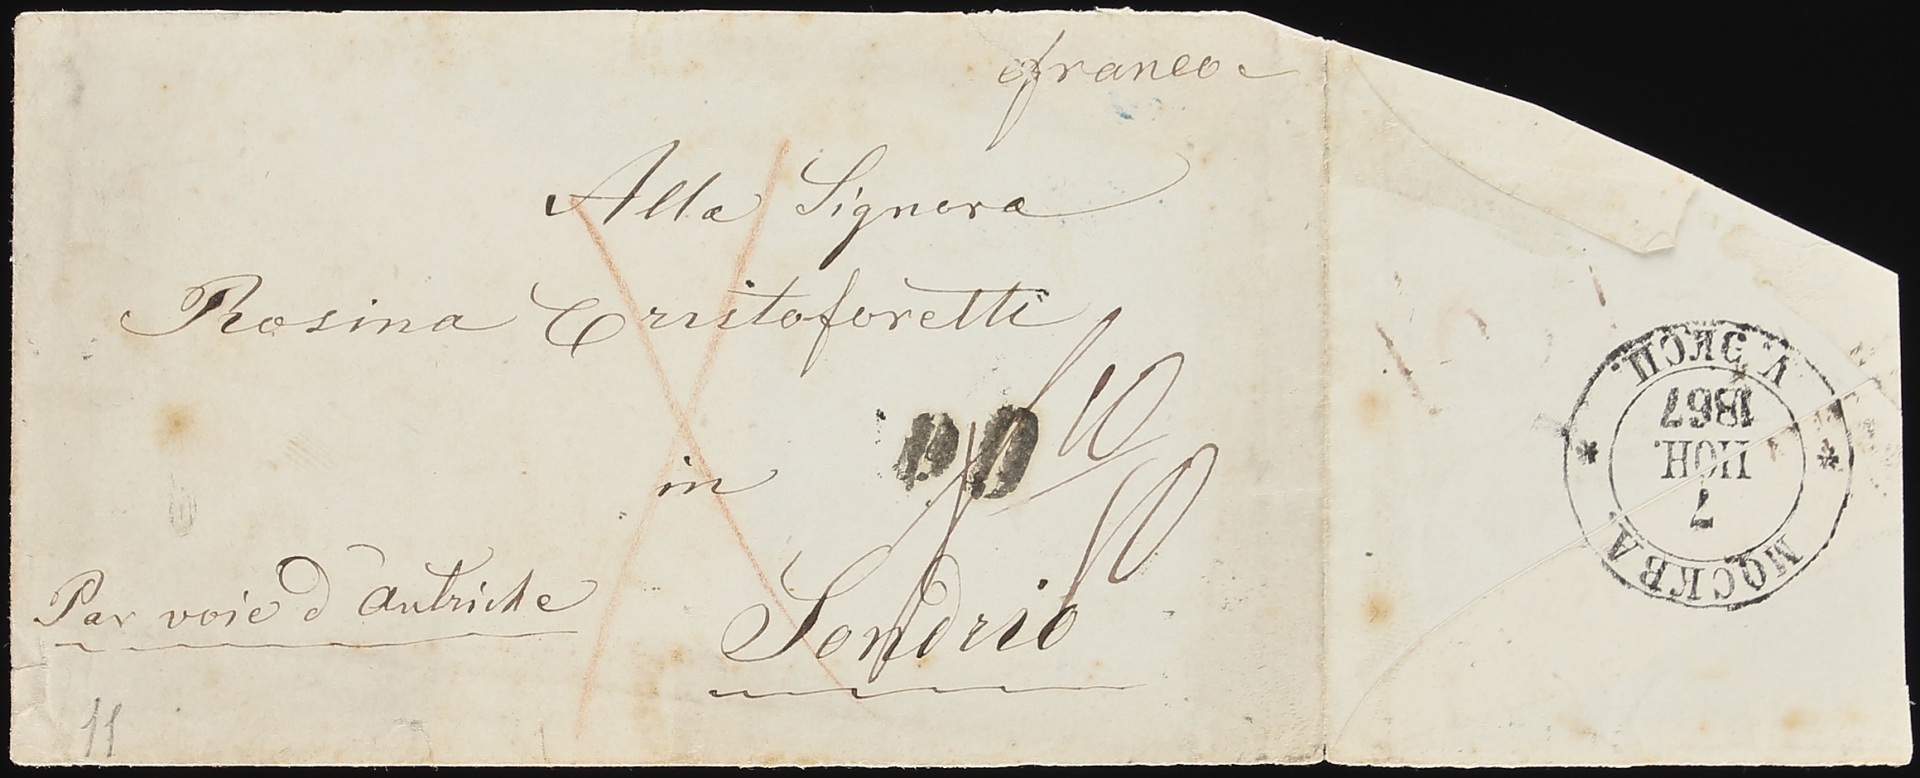 franco.
Alla Signora
Rosina Cristoforetti
in
Sondrio
Par voie d'Autriche
PD
10
11
МОСКВА
7
ІЮН.
1867
V. ЭКСП.